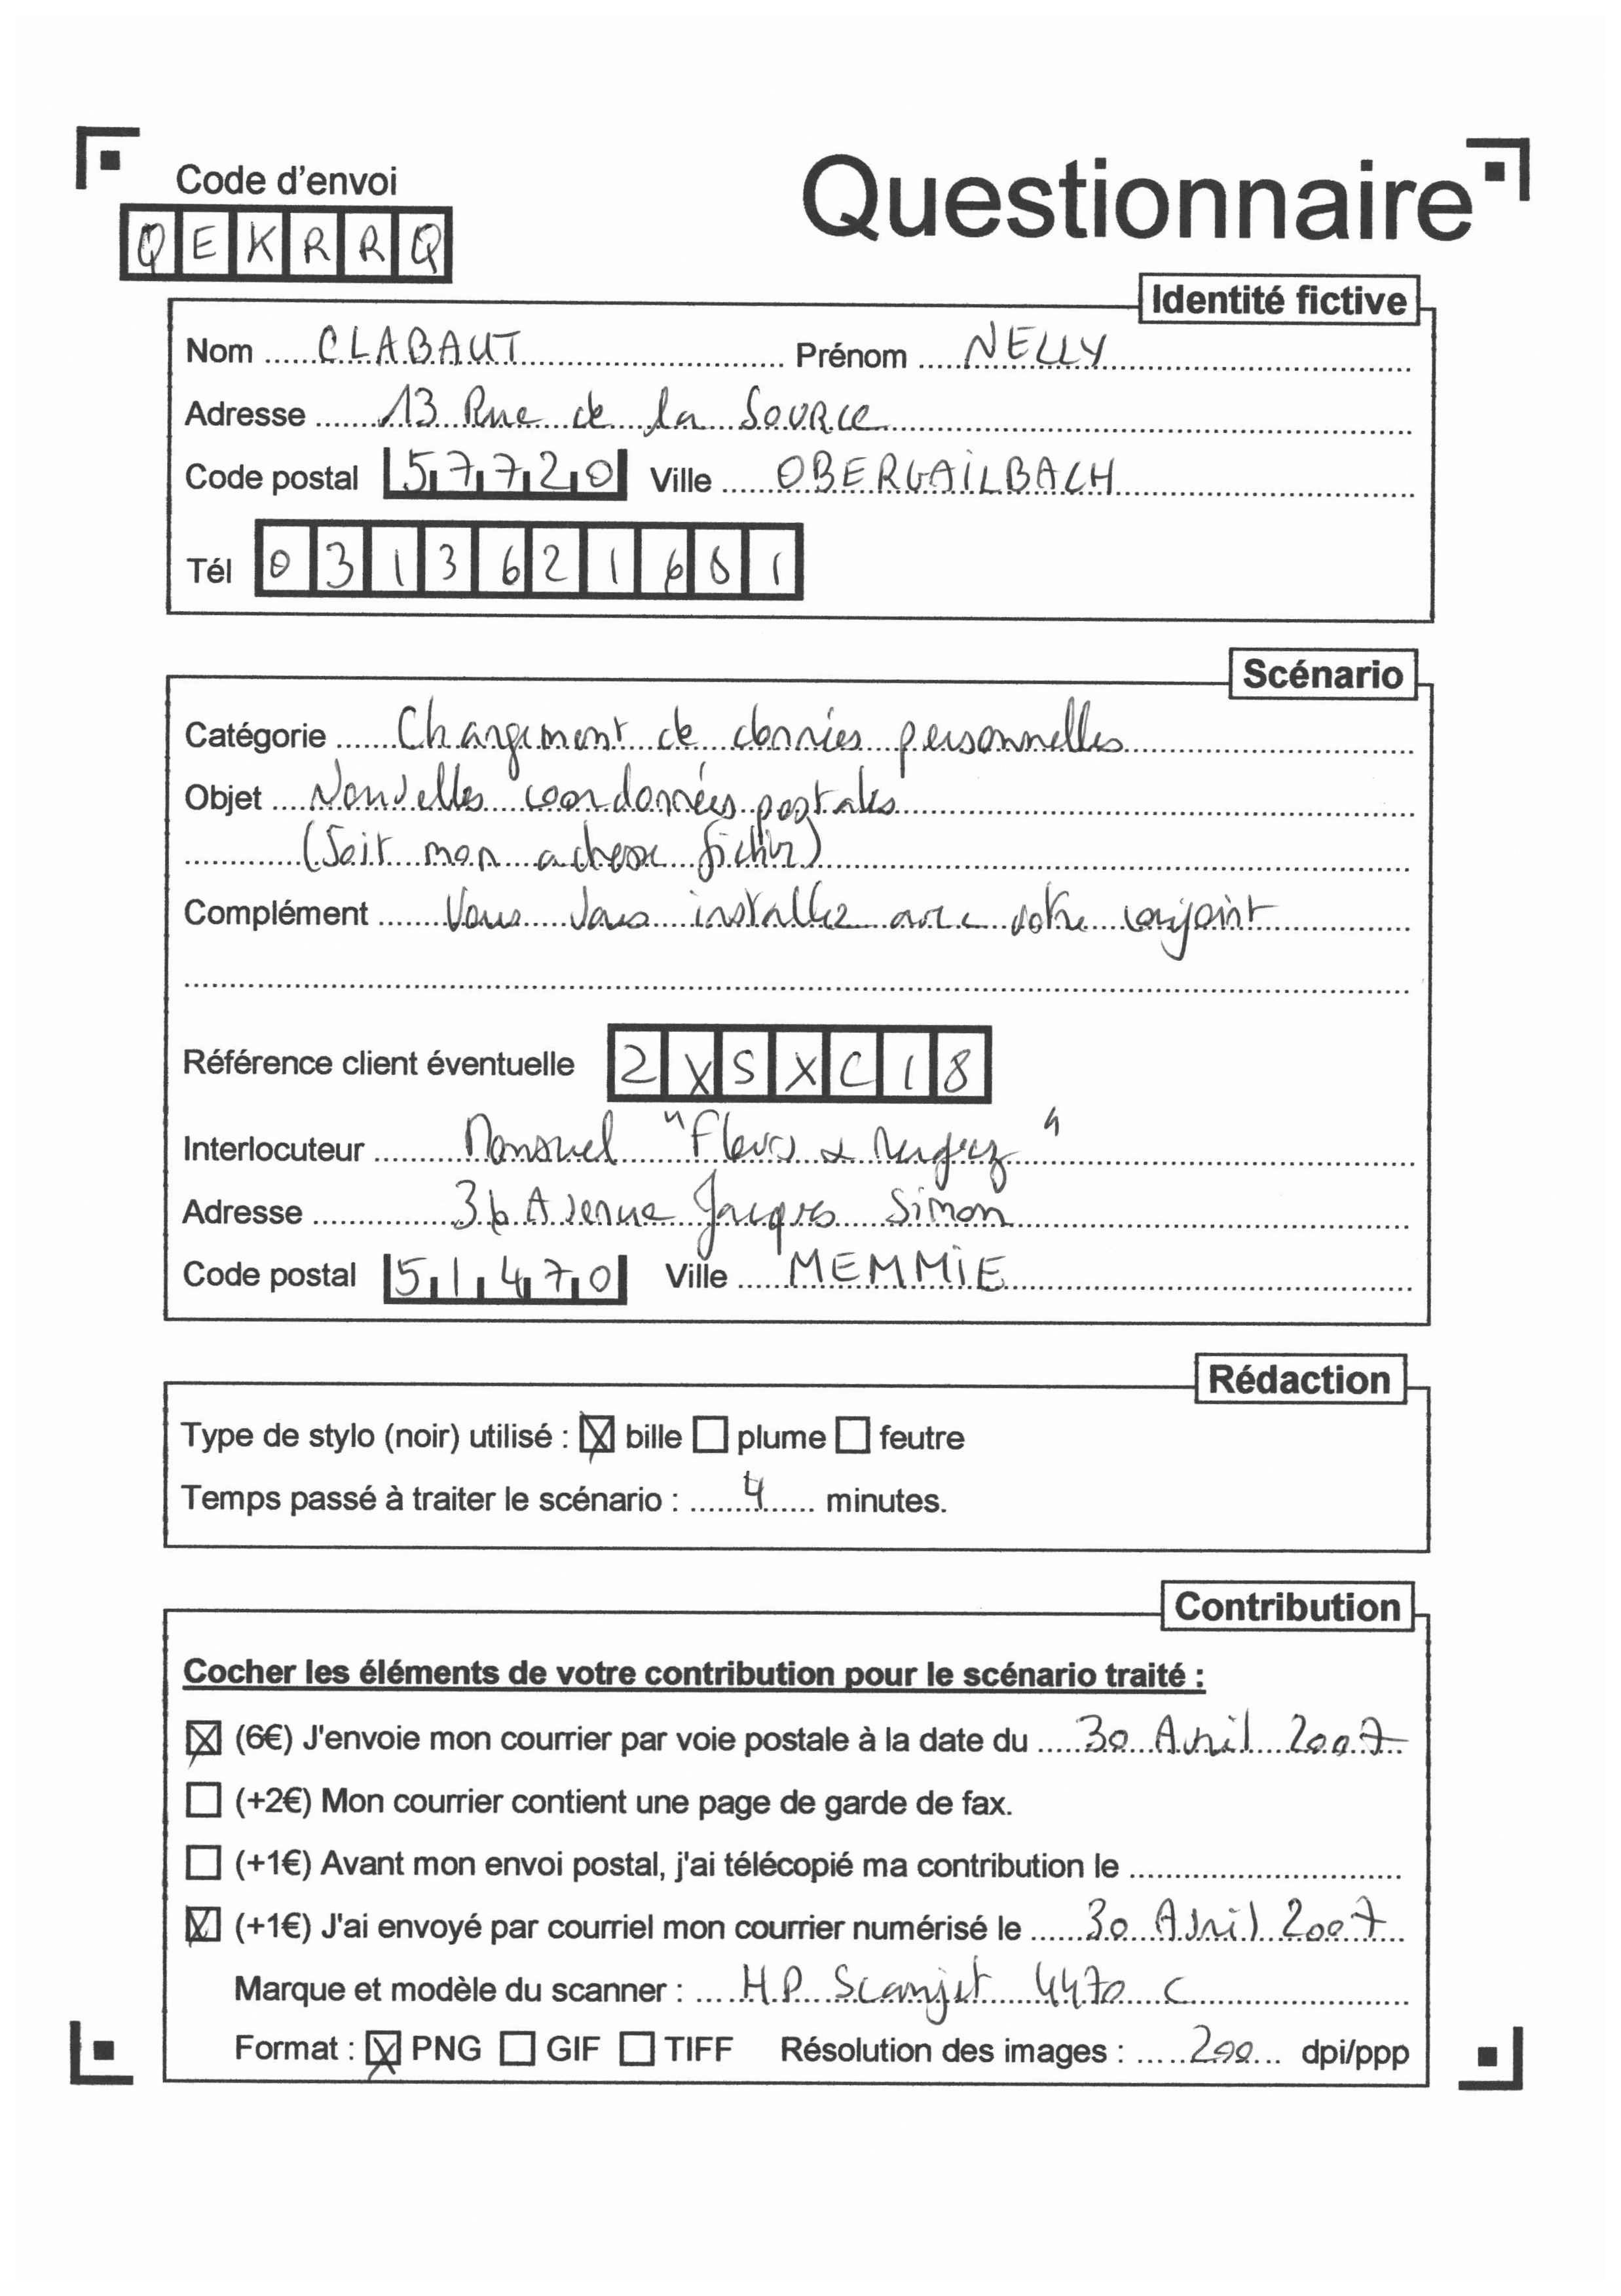 Code d'envoi
Questionnaire
QEKRRQ
Identité fictive
Nom CLABAUT Prénom NELLY
Adresse 13 Rue de la Source
Code postal 57720 Ville OBERGAILBACH
Tél 03136216 1
Scénario
Catégorie Changement de données personnelles
Objet Nouvelles coordonnées postales
(Soit mon adresse fictive)
Complément Vous vous installez avec votre conjoint
Référence client éventuelle 2XSXC18
Interlocuteur Mensuel "Fleurs &
Adresse 36 Avenue Jacques Simon
Code postal 51470 Ville MEMMIE
Rédaction
Type de stylo (noir) utilisé : bille plume feutre
Temps passé à traiter le scénario : 4 minutes.
Contribution
Cocher les éléments de votre contribution pour le scénario traité :
(6€) J'envoie mon courrier par voie postale à la date du 30 Avril 2007
(+2€) Mon courrier contient une page de garde de fax.
(+1€) Avant mon envoi postal, j'ai télécopié ma contribution le
(+1€) J'ai envoyé par courriel mon courrier numérisé le 30 Avril 2007
Marque et modèle du scanner : H.P Scanjet 4470 C
Format : PNG GIF TIFF Résolution des images : 200 dpi/ppp